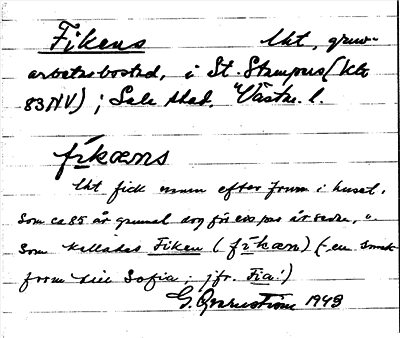 Fikens lht, gruv-
arbetarbostad, i St. Stampers (kbl
83NV); Sala stad. Västm. l.
fíkæns
lht fick namn efter frun i huset,
som ca 85 år gammal dog för ett par år sedan, o.
som kallades Fiken (fíkæn) (en smek-
form till Sofia; jfr. Fia!)
G. 1943